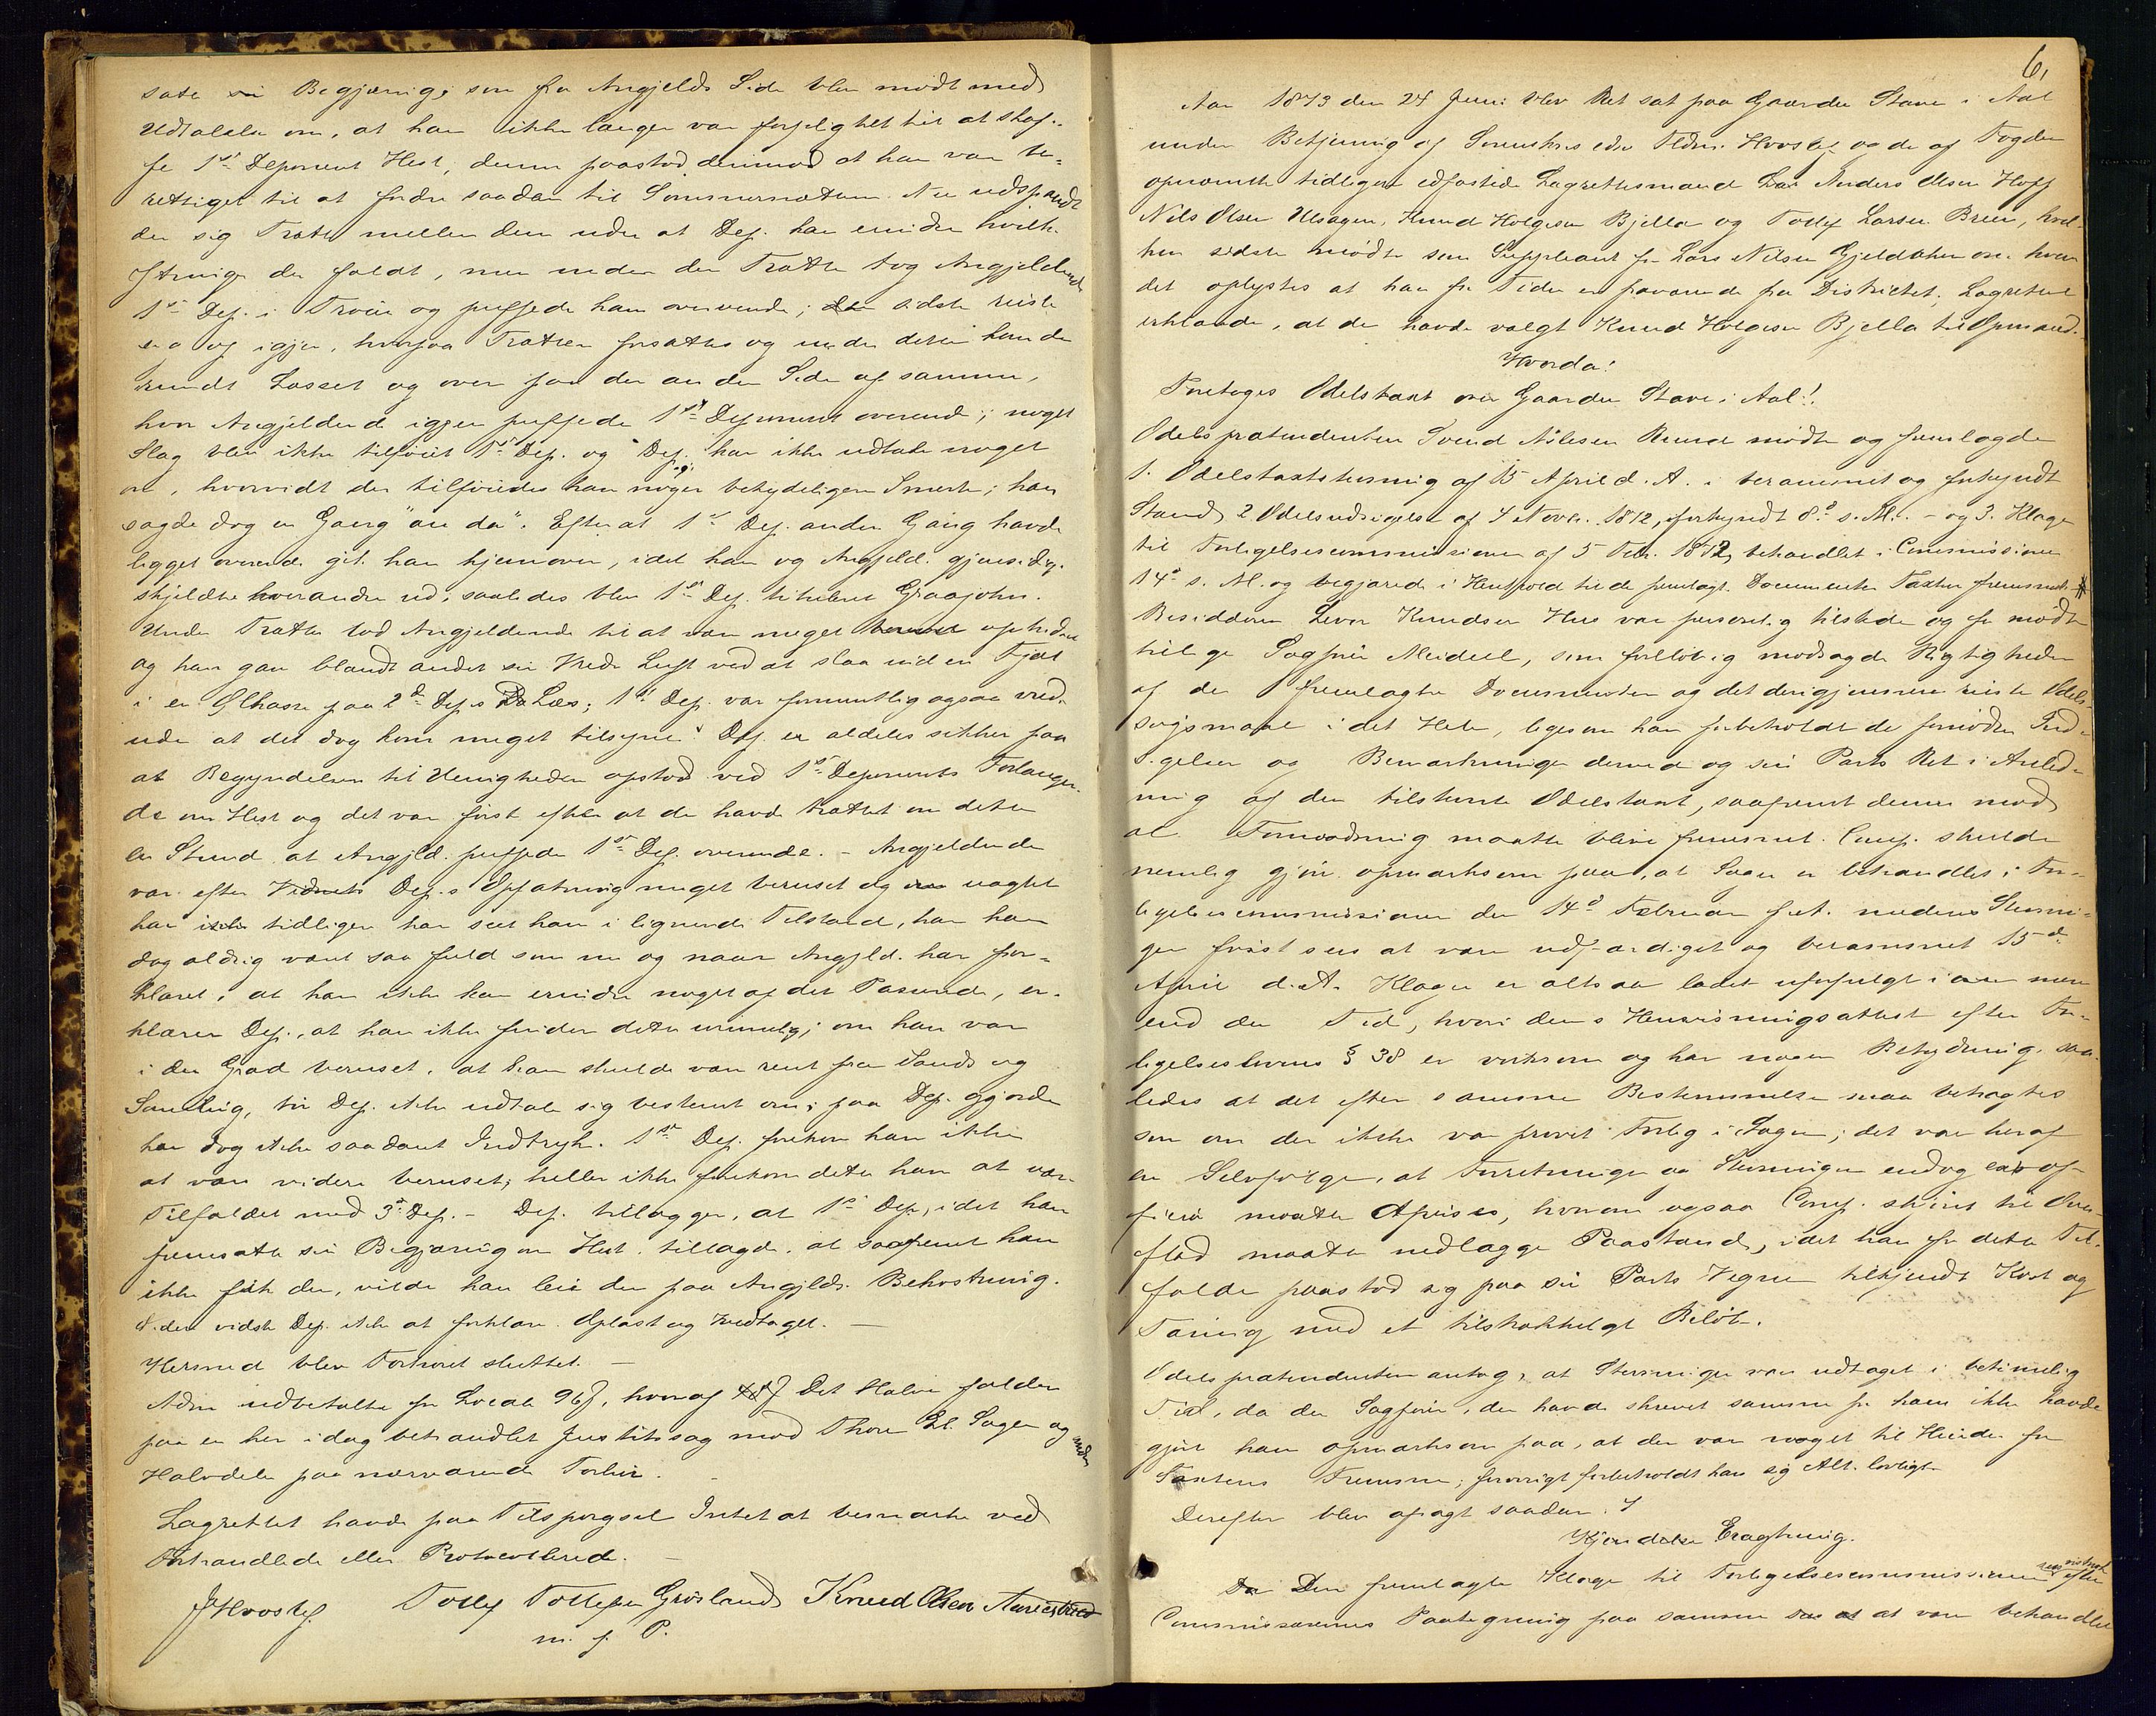 satte sin Begjæring, som fra Angjelds Side blev mødt med
Udtalelse om, at han ikke længer var forpligtet til at skaf-
fe 1ste Deponent Hest, denne paastod derimod at han var be-
rettiget til at fordre saadan til Sommernætterne. Nu udspandt
der sig Trætte mellem dem uden at Dep. kan erindre hvilke
Ytringer der faldt, men under den Trætte tog Angjeldende
1ste Dep. i Trøien og puffede ham overende; den sidste reiste
sig igjen, hvorpaa Trætten fortsattes og under dette kom de
rundt Læsset og over paa den anden Side af samme,
hvor Angjeldende igjen puffede 1ste Deponent overende; noget
Slag blev ikke tilføiet 1ste Dep. og Dep. kan ikke udtale noget
om, hvorvidt der tilføiedes ham nogen betydeligere Smerte; han
sagde dog en Gang "au da". Efter at 1ste Dep. anden Gang havde
ligget overende gik han hjemover, idet han og Angjeld. gjensidig
skjældte hverandre ud, saaledes blev 1ste Dep. tituleret Graajohn.
Under Trætten lod Angjeldende til at være meget beruset ophidset
og han gav blandt andet sin Vrede Luft ved at slaa ind en Fjæl
i en Ølkasse paa 2den Dep.s Læs; 1ste Dep. var formentlig ogsaa vred,
uden at det dog kom meget tilsyne. Dep. er aldeles sikker paa
at Begyndelsen til Uenigheden opstod ved 1ste Deponents Forlangen-
de om Hest og det var først efter at de havde trættet om dette
en Stund at Angjld. puffede 1ste Dep. overende. – Angjeldende
var efter Vidnets Dep.s Opfatning meget beruset og uagtet
han ikke tidligere har seet ham i lignende Tilstand, har han
dog aldrig været saa fuld som nu og naar Angjld. har for-
klaret, at han ikke kan erindre noget af det Passerede, er-
klærer Dep., at han ikke finder dette urimelig; om han var
i den Grad beruset, at han skulde være rent fra Sands og
Samling, tør Dep. ikke udtale sig bestemt om; paa Dep. gjorde
han dog ikke saadant Indtryk. 1ste Dep. forekom ham ikke
at være videre beruset; heller ikke forekom dette ham at være
Tilfældet med 3die Dep. – Dep. tillægger, at 1ste Dep., idet han
fremsatte sin Begjæring om Hest, tillagde, at saafremt han
ikke fik den, vilde han leie den paa Angjlds. Bekostning.
Viden vidste Dep. ikke at forklare. Oplæst og vedtaget. –
Hermed blev Forhøret sluttet. –
Adm. udbetalte for Locale 96 ß, hvoraf 48 ß Det Halve falder
paa en her idag behandlet Justitssag mod Thore Ls. Sagen og den anden
Halvdelen paa nærværende Forhør.
Lagrettet havde paa Tilspørgsel Intet at bemærke ved
Forhandlede eller Protocollerede. –
J Hvoslef. Tollef Tollefsen Grøsland Knud Olsen
m. f. P.
6,
Aar 1873 den 24 Juni blev Ret sat paa Gaarden Stave i Aal
under Betjening af Sorenskriver edsv Fldm. Hvoslef og de af Fogden
opnævnte tidligere edfæstede Lagrettesmænd Anders Olsen Hoff
Nils Olsen Ulsager, Knud Holgesen Bjella og Tollef Larsen Breie, hvil-
ken sidste mødte som Suppleant for Lars Nilsen Gjeldokken om hvem
det oplystes at han for Tiden er fraværende fra Districtet. Lagrettet
erklærede, at de havde valgt Knud Holgesen Bjella til Opmand.
Hvorda:
Foretoges Odelstaxt over Gaarden Stave i Aal:
Odelsprætendenten Svend Nilsen Ruud mødte og fremlagde
1. Odelstaxtstevning af 15 April d. A. i berammet og forkyndt
Stand, 2 Odelsudsigelse af 4 Novbr. 1872, forkyndt 8de s. M. – og 3. Klage
til Forligelsescommissionen af 5 Febr. 1872, behandlet i Commissionen
14de s. M. og begjærede i Henhold til de fremlagte Documenter Taxten fremmet
Besidderen Levor Knudsen Hus var personlig tilstede og for mødte
tillige Sagfører Meidell, som foreløbig modsagde Rigtigheden
af de fremlagte Documenter og det derigjennem reiste Odels-
søgsmaal i det Hele, ligesom han forbeholdt de fornødne Ind-
sigelser og Bemærkninger derved og sin Parts Ret i Anled-
ning af den tilstevnte Odelstaxt, saafremt denne mod
al Formodning maatte blive fremmet. Comp. skulde
nemlig gjøre opmærksom paa, at Sagen er behandlet i For-
ligelsescommissionen den 14de Februar f. A. medens Stevnin-
gen først sees at være udfærdiget og berammet 15de
April d. A. Klagen er altsaa ladet uforfulgt i mere
end den Tid, hvori dens Henvisningsattest efter For-
ligelseslovens § 38 er virksom og har nogen Betydning, saa-
ledes at det efter samme Bestemmelse maa betragtes
som om der ikke var prøvet Forlig i Sagen; det var heraf
en Selvfølge, at Forretningen og Stevningen endog ex of-
ficio maatte Afvises, hvorom ogsaa Comp. skjønt til Over-
flød maatte nedlægge Paastand, idet han for dette Til-
fælde paastod sig paa sin Parts Vegne tilkjendt Kost og
Tæring med et tilstrækkeligt Beløb.
Odelsprætendenten antog, at Stevningen var udtaget i betimelig
Tid, da den Sagfører, der havde skrevet samme for ham ikke havde
gjort ham opmærksom paa, at der var noget til Hinder for
Taxtens Fremme; forøvrigt forbeholdt han sig Alt lovligt.
Derefter blev afsagt saadan
Kjendelse Eragtning.
Da Den fremlagte Klage til Forligelsescommissionen sees vistnok efter
Commissærernes Paategning paa samme at være behandlet